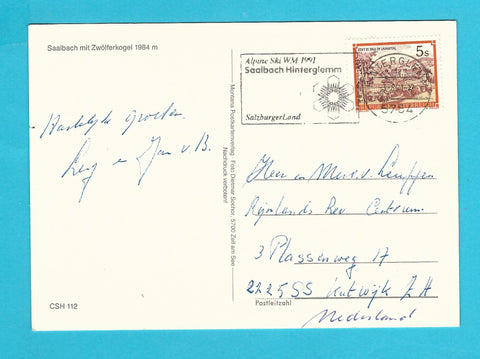 Saalbach mit Zwölferkogel 1984 m
Hartelijke groeten
en Jan v. B.
CSH 112
Montana Postkartenverlag · Foto Dietmar Sochor, 5700 Zell am See
Nachdruck verboten!
Alpine Ski WM 1991
Saalbach Hinterglemm
SalzburgerLand
5s
5754
Heer en Mevr. v.
Rijnlands Rev Centrum
3 Plassenweg 17
2225SS Katwijk Z H
Nederland
Postleitzahl